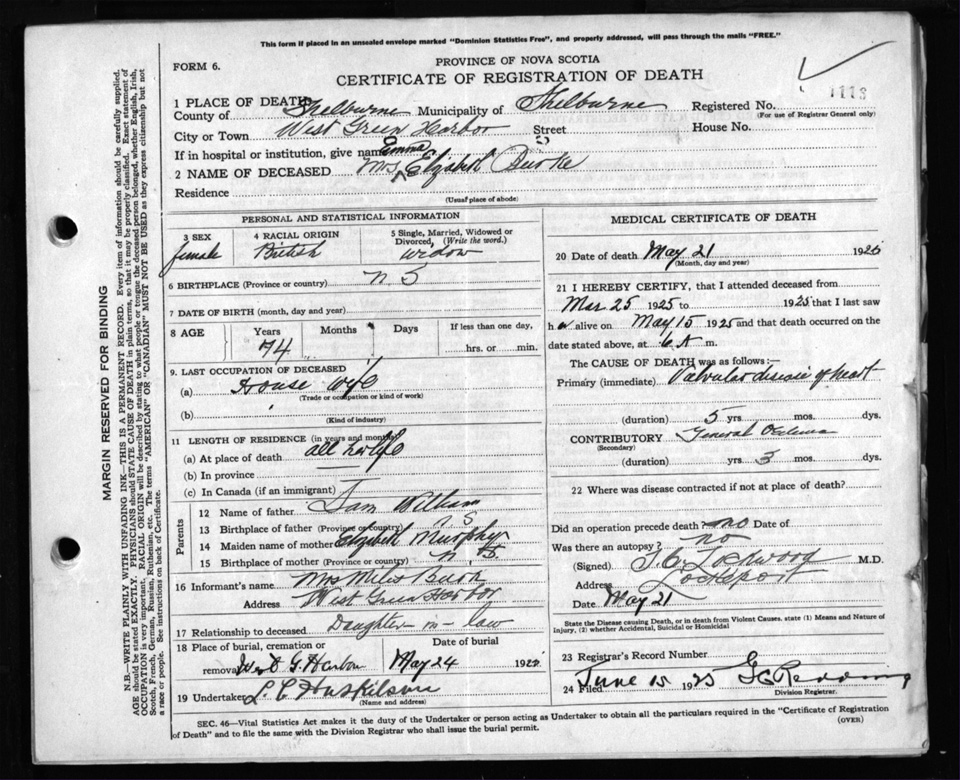 This form if placed in an unsealed envelope marked "Dominion Statistics Free", and properly addressed, will pass through the mails "FREE."
PROVINCE OF NOVA SCOTIA
FORM 6.
CERTIFICATE OF REGISTRATION OF DEATH
1113
1 PLACE OF DEATH
County of Shelburne Municipality of Shelburne Registered No.
(For use of Registrar General only)
City or Town West Green Harbor Street House No.
If in hospital or institution, give name
Emma
2 NAME OF DECEASED Mrs Elizabeth Burke
Residence
(Usual place of abode)
PERSONAL AND STATISTICAL INFORMATION
3 SEX 4 RACIAL ORIGIN 5 Single, Married, Widowed or Divorced, (Write the word.)
female British widow
6 BIRTHPLACE (Province or country) N S
7 DATE OF BIRTH (month, day and year)
8 AGE Years Months Days If less than one day,
74 hrs. or min.
9. LAST OCCUPATION OF DECEASED
(a) House wife
(Trade or occupation or kind of work)
(b)
(Kind of industry)
11 LENGTH OF RESIDENCE (in years and months)
(a) At place of death all her life
(b) In province
(c) In Canada (if an immigrant)
Parents
12 Name of father Sam William
13 Birthplace of father (Province or country) N S
14 Maiden name of mother Elizabeth Murphy
15 Birthplace of mother (Province or country) N S
16 Informant's name Mrs Miles Burke
Address West Green Harbor
17 Relationship to deceased Daughter-in-law
18 Place of burial, cremation or Date of burial
removal West G. Harbor May 24 192
19 Undertaker
(Name and address)
MEDICAL CERTIFICATE OF DEATH
20 Date of death May 21 1925
(Month, day and year)
21 I HEREBY CERTIFY, that I attended deceased from
Mar 25 1925 to 1925 that I last saw
her alive on May 15 1925 and that death occurred on the
date stated above, at 6 A m.
The CAUSE OF DEATH was as follows:—
Primary (immediate) Valvular disease of heart
(duration) 5 yrs mos. dys.
CONTRIBUTORY General Oedema
(Secondary)
(duration) yrs 3 mos. dys.
22 Where was disease contracted if not at place of death?
Did an operation precede death? no Date of
Was there an autopsy? no
(Signed) Lockwood M.D.
Address Lockeport
Date May 21
State the Disease causing Death, or in death from Violent Causes, state (1) Means and Nature of
Injury, (2) whether Accidental, Suicidal or Homicidal
23 Registrar's Record Number
24 Filed June 15 1925
Division Registrar.
SEC. 46—Vital Statistics Act makes it the duty of the Undertaker or person acting as Undertaker to obtain all the particulars required in the "Certificate of Registration
of Death" and to file the same with the Division Registrar who shall issue the burial permit.
(OVER)
MARGIN RESERVED FOR BINDING
N.B.—WRITE PLAINLY WITH UNFADING INK—THIS IS A PERMANENT RECORD. Every item of information should be carefully supplied.
AGE should be stated EXACTLY. PHYSICIANS should STATE CAUSE OF DEATH in plain terms, so that it may be properly classified. Exact statement of
OCCUPATION is very important. RACIAL ORIGIN will be described by stating to what people or tongue the deceased person belonged, whether English, Irish,
Scotch, French, German, Russian, Ruthenian, etc. The terms "AMERICAN" OR "CANADIAN" MUST NOT BE USED as they express citizenship but not
a race or people. See instructions on back of Certificate.